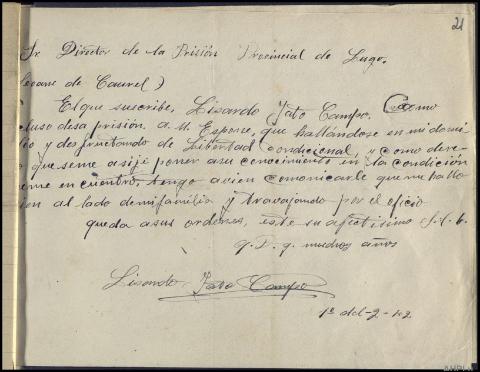 21
Sr Director de la Prisión Provincial de Lugo.
Seoane de Caurel)
El que suscribe, Lisardo Jato Campo. Como
cluso desa prisión. a U. Espone, que hallándose en mi domi
lio y desfructando de Libertad condicional, y como dere
o que seme asije poner asu conocimiento en la condición
eme en cuentro, tengo avien comunicarle que me hallo
ien al lado demifamilia y travajando por el oficio
queda asus ordenes, este su afectisimo
q. D. g. muchos anos
Lisardo Jato Campo
1º del-2-42